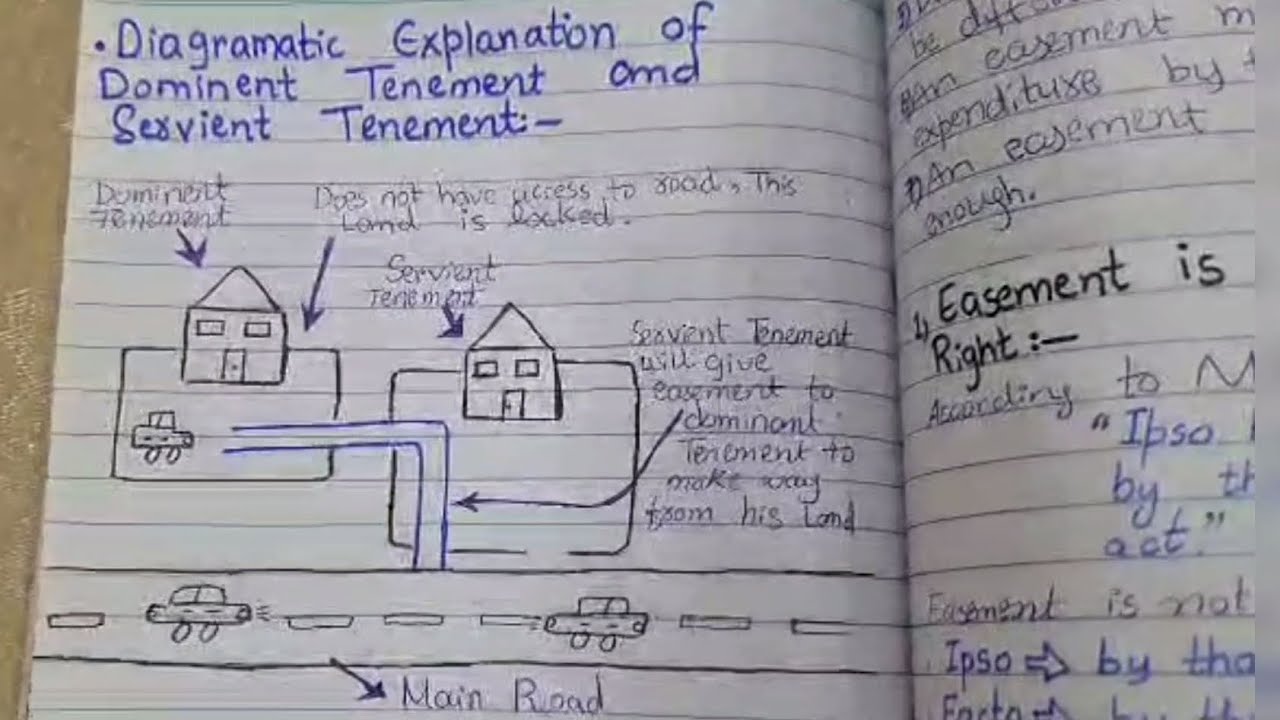 • Diagramatic Explanation of
Dominent Tenement and
Servient Tenement:-
Dominent
Tenement
Does not have access to road, This
Land is locked.
Servient
Tenement
Servient Tenement
will give
easement to
dominant
Tenement to
make way
from his Land
Main Road
be
An easement m
expenditure by
7) An easement
enough.
1) Easement is
Right:-
According to M
"Ipso
by th
act."
Easement is not
Ipso ⇒ by tha
Facto ⇒ by